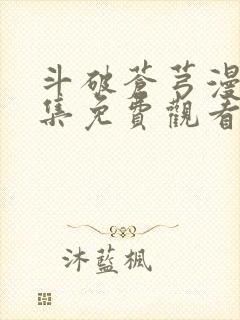 斗破蒼芎漫
集免費觀看
沐藍楓